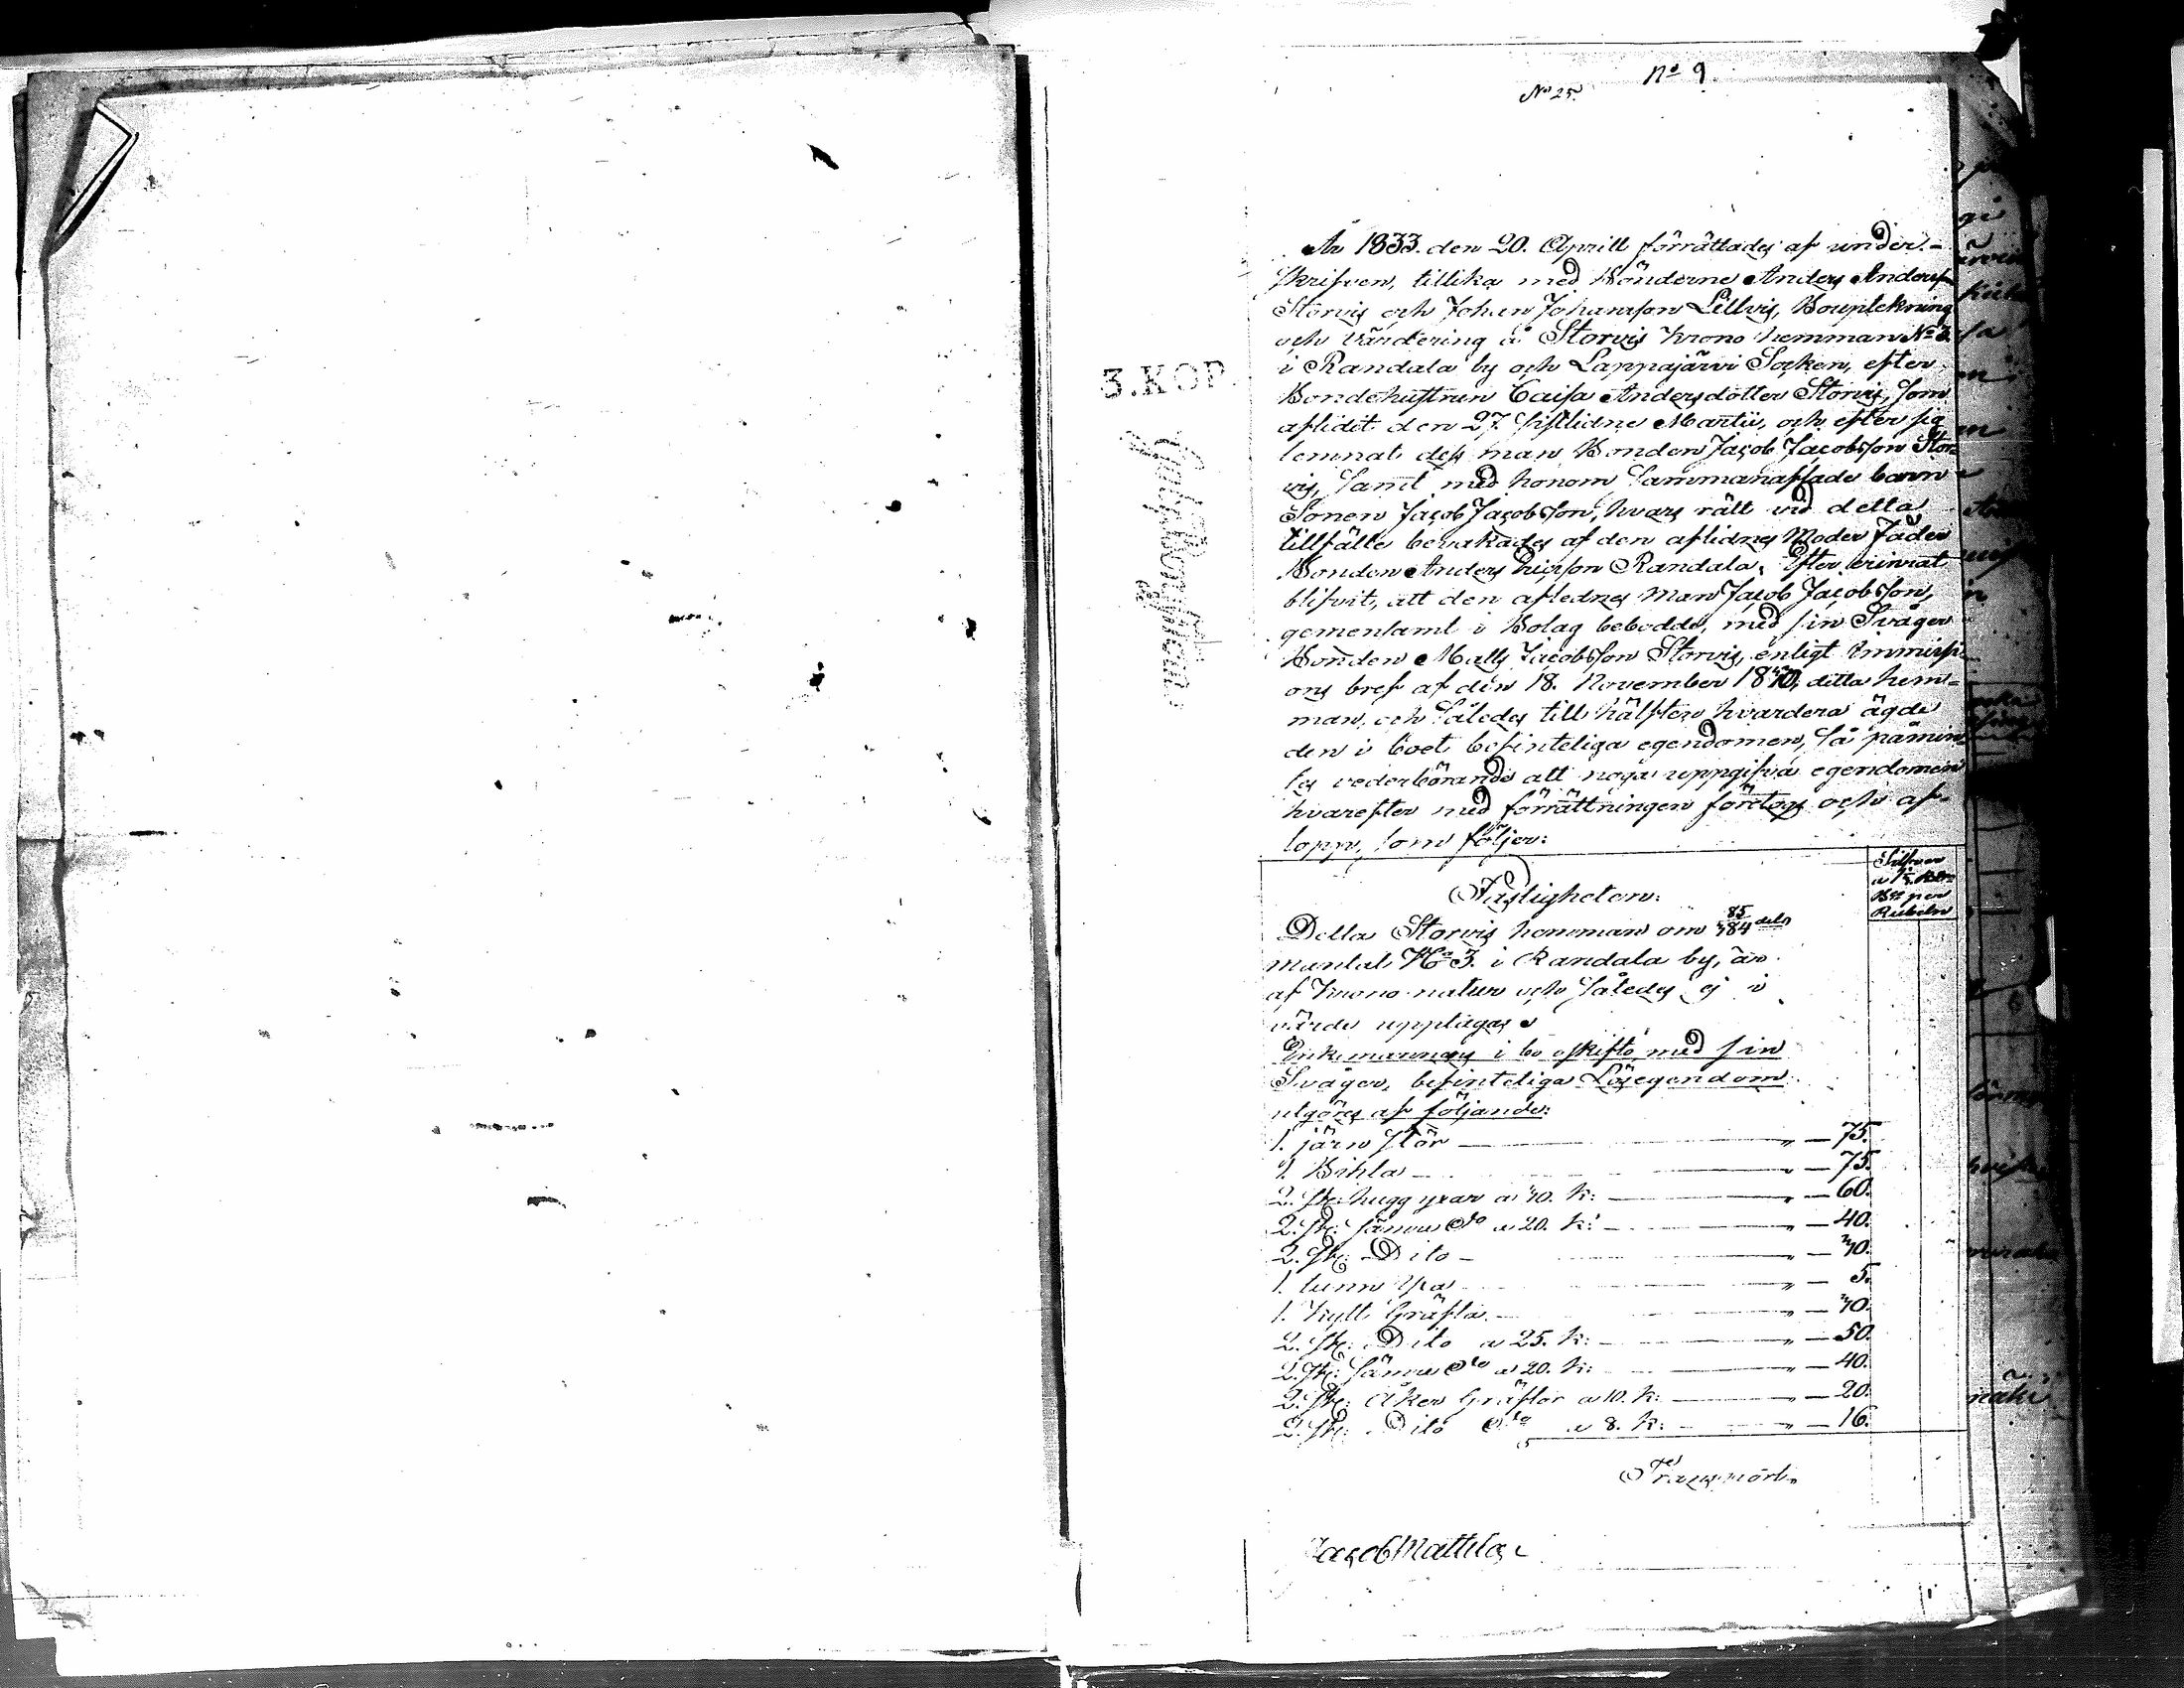 No 9.
No 25.
3.KOP.
År 1833. den 20. Aprill förrättades af under-
skrifven, tillika med Bönderne Anders Andersson
Storvis och Johan Johansson Lillvis, Bouptekning
och Värdering å Storvis Krono hemman No 3.
i Randala by och Lappajärvi Socken, efter
Bondehustrun Caisa Andersdotter Storvis, som
aflidit den 27 sistlidne Martii, och efter sig
lemnat des man Bonden Jacob Jacobsson Stor-
vis, samt med honom sammanaflade barn
Sonen Jacob Jacobsson, hvars rätt vid detta
tillfälle bevakades af den aflidnes Moder Fader
Bonden Anders Ericsson Randala. Efter erinrat
blifvit, att den aflednes Man Jacob Jacobsson,
gemensamt i Bolag bebodde, med sin Svåger
Bonden Matts Jacobsson Storvis, enligt Immissi-
ons bref af den 18. November 1830, detta hem-
man, och således till hälften hvardera ägde
den i boet befinteliga egendomen, så påmin-
tes vederbörande att noga uppgifva egendomen
hvarefter med förrättningen företogs och af-
lopp, som följer:
Silfver
Rubeln
Fastigheten.
Detta Storvis hemman om 85/384 dels
mantal No 3. i Randala by, är
af Krono natur och således ej i
värde upptages
Enkemannens i bo oskifto med sin
Svåger, befinteliga Lösegendom
utgöres af följande:
1. järn stör — " — 75.
1. Bihla — " — 75.
2. st: hugg yxar a 30. K: — " — 60.
2. st: sämre do a 20. K: — " — 40.
2. st: Dito — " — 30.
1. tunn yxa — " — 5.
1. Kytt Gräfta — " — 30.
2. st: Dito a 25. K: — " — 50.
2. st: sämre do a 20. K: — " — 40.
2. st: Åker Gräftor a 10. K: — " — 20.
2. st: Dito do a 8. K: — " — 16.
Transport
Jacob Mattila